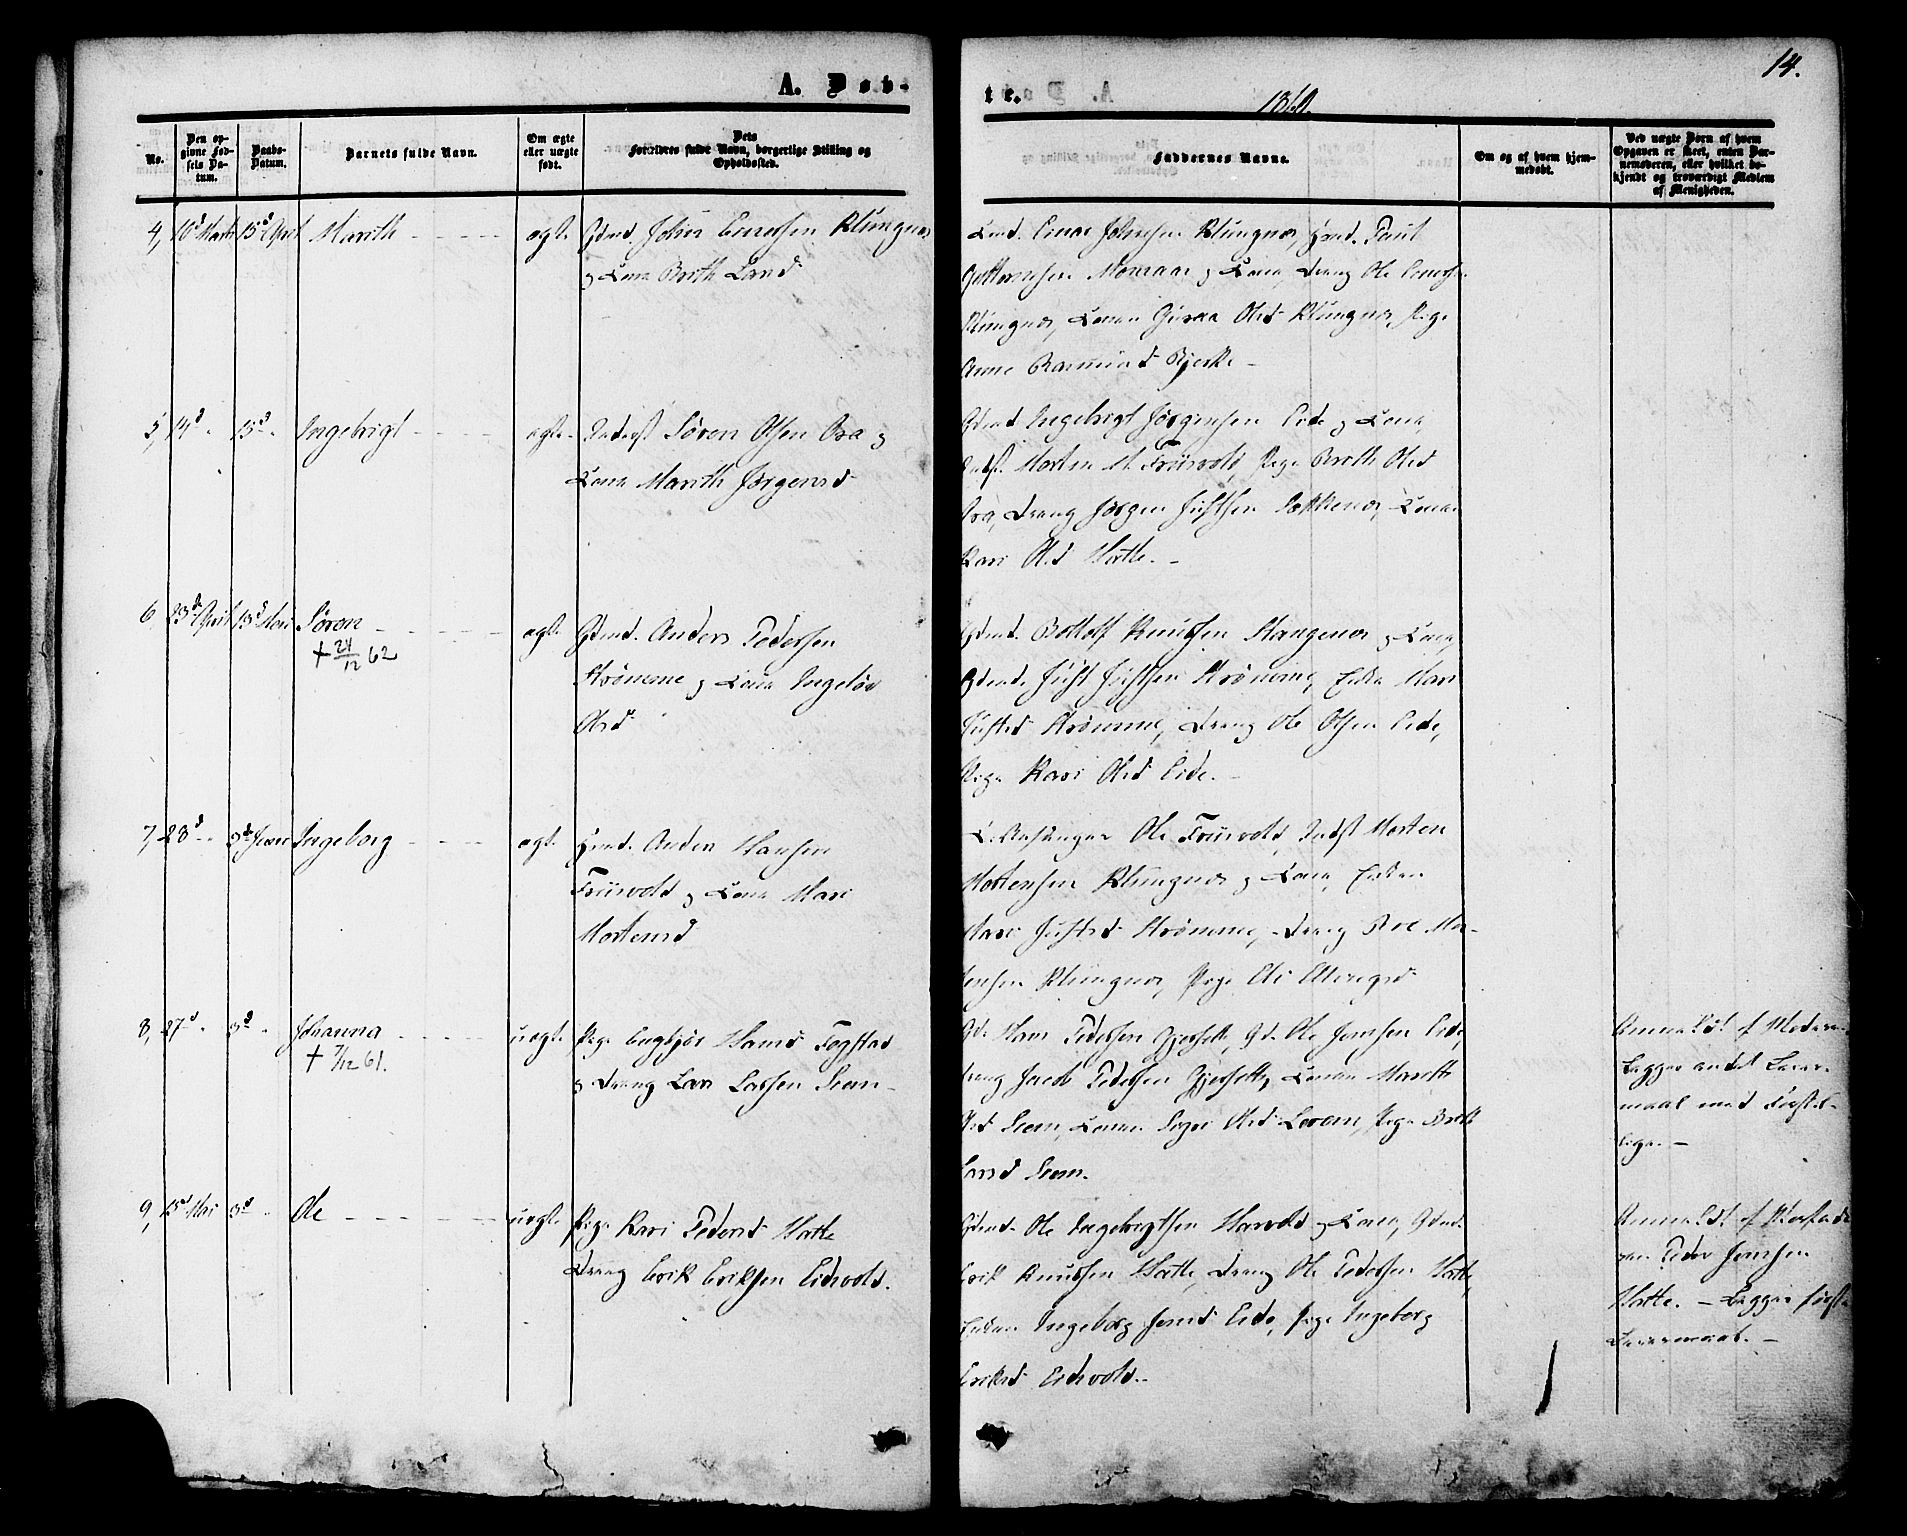 A. Døb-
te.
1860.
14.
No.
Den op-
givne Fød-
sels Da-
tum.
Daabs-
Datum.
Barnets fulde Navn.
Om ægte
eller uægte
født.
Dets
Forældres fulde Navn, borgerlige Stilling og
Opholdssted.
Faddernes Navne.
Om og af hvem hjem-
medøbt.
Ved uægte Børn af hvem
Opgaven er skeet, enten Bar-
nemoderen, eller hvilket be-
kjendt og troværdigt Medlem
af Menigheden.
4, 10d Marts 15d April Marith ægte Gdmd. John Einersen Klungnes
og Kona Berth Larsd
Einar Johnsen Klungnes, Gmd. Paul
Guttormsen Monsaas og Kona, Dreng Ole Einersen
Klungnes, Konen Guroa Olsd Klungnes, Pige
Anne Rasmusd Bjerke -
5, 14d " 15d " Ingebrigt ægte Inderst Søren Olsen Ora og
Kona Marith Jørgensd
Gdmd Ingebrigt Jørgensen Eide og Kona,
Indst Morten M. Friisvold, Pige Berith Olsd
Ora, Dreng Jørgen Justsen Sækkenes, Konen
Kari Olsd Hatle. -
6, 23de April 13d Mai Søren ægte Gdmd. Anders Pedersen
† 24/12 62
Strømme og Kona Ingebør
Olsd
Gdmd. Bottolf Knudsen Stangenes og Kona,
Gdmd. Just Justsen Strømme, Enken Mari
Justsd Strømme, Dreng Ole Olsen Eide,
Pige Kari Olsd Eide. -
7, 28d " 3de Juni Ingeborg ægte Hmd. Anders Hansen
Friisvold og Kona Mari
Mortensd
Ole Friisvold, Indst Morten
Mortensen Klungnes og Kona, Enken
Mari Justsd Strømme, Dreng Roe Mor-
tensen Klungnes, Pige Eli Ellingsd
8, 27d " 3d " Johanna uægte Pige Engbjør Hansd Fogstad
† 7/12 61.
og Dreng Lars Larsen Seem -
Gd. Hans Pedersen Gjersetle, Gd. Ole Jensen Eide,
Dreng Jacob Pedersen Gjersetle, Konen Marith
Olsd Seem, Konen Sigri Olsd Lereim, Pige Berith
Larsd Seem.
Anmeldt af Moderen
Begges andet Leier-
maal med Forskjel-
lige. -
9, 15d Mai 3d " Ole uægte Pige Kari Pedersd Hatle
Dreng Erik Eriksen Eidsvold.
Gdmd. Ole Ingebrigtsen Harvold og Kona, Gdmd.
Erik Knudsen Hatle, Dreng Ole Pedersen Hatle,
Enken Ingeborg Jonsd Eide, Pige Ingeborg
Eriksd Eidsvold. -
Anmeldt af
Peder Jensen
Hatle. - Begges første
Leiermaal. -